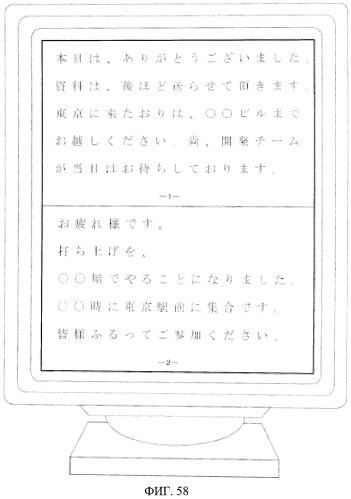 本日は、ありがとうございました。
資料は、後ほど送らせて頂きます。
東京に来たおりは、〇〇ビルまで
お越しください。尚、開発チーム
が当日はお待ちしております。
—1—
お疲れ様です。
打ち上げを、
〇〇屋でやることになりました。
〇〇時に東京駅前に集合です。
皆様ふるってご参加ください。
—2—
ФИГ. 58